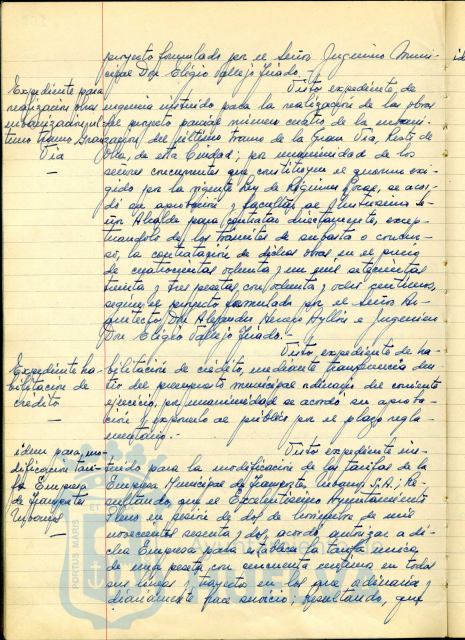 proyecto formulado por el Señor Ingeniero Muni-
cipal Don Eligio Vallejo Jurado.-
Expediente para
realización obras
urbanización úl-
timo tramo Gran
Vía
Visto expediente de
urgencia instruido para la realización de las obras
del proyecto parcial número cuatro de la urbani-
zación del último tramo de la Gran Vía, Resto de
Olla, de esta Ciudad; por unanimidad de los
señores concurrentes que constituyen el quorum exi-
gido por la vigente Ley de Régimen Local, se acor-
dó su aprobación y facultar al Ilustrísimo Se-
ñor Alcalde para contratar directamente, excep-
tuándolo de los trámites de subasta o concur-
so, la contratación de dichas obras en el precio
de cuatrocientas ochenta y un mil setecientas
treinta y tres pesetas con ochenta y ocho céntimos,
según el proyecto formulado por el Señor Ar-
quitecto Don Alejandro Herrero Ayllón e Ingeniero
Don Eligio Vallejo Jurado.-
Expediente ha-
bilitación de
crédito
Visto, expediente de ha-
bilitación de crédito, mediante transferencia den-
tro del presupuesto municipal ordinario del corriente
ejercicio, por unanimidad se acordó su aproba-
ción y exponerlo al público por el plazo regla-
mentario.-
idem para mo-
dificación tari-
fas Empresa
de Transportes
Urbanos
Visto expediente ins-
truido para la modificación de las tarifas de la
Empresa Municipal de Transportes Urbanos, S.A.; Re-
sultando, que el Excelentísimo Ayuntamiento
Pleno en sesión de dos de Noviembre de mil
novecientos sesenta y dos, acordó autorizar a di-
cha Empresa para establecer la tarifa única
de una peseta con cincuenta céntimos en todas
sus líneas y trayecto en los que ordinaria y
diariamente hace servicio; Resultando, que
PORTUS MARIS